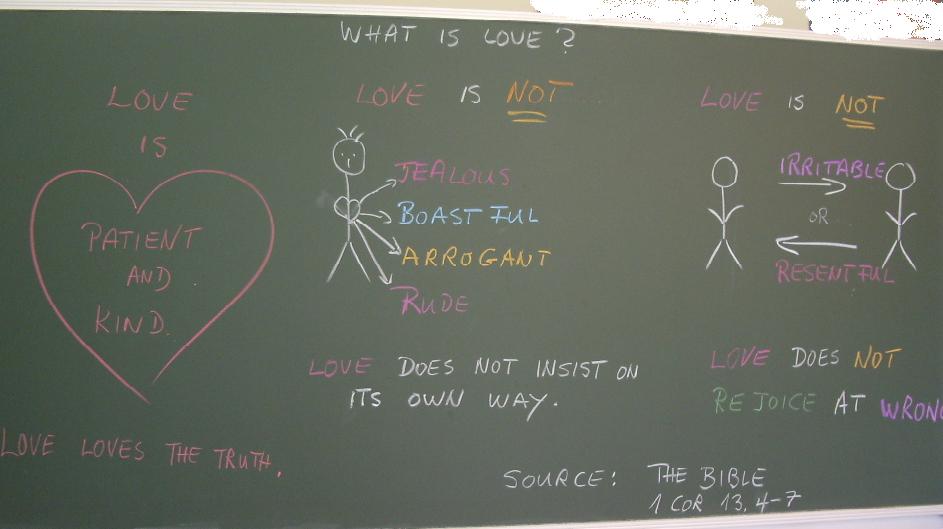 WHAT IS LOVE?
LOVE
IS
PATIENT
AND
KIND.
LOVE LOVES THE TRUTH.
LOVE IS NOT
JEALOUS
BOASTFUL
ARROGANT
RUDE
LOVE DOES NOT INSIST ON
ITS OWN WAY.
LOVE IS NOT
IRRITABLE
OR
RESENTFUL
LOVE DOES NOT
REJOICE AT WRONG
SOURCE: THE BIBLE
1 COR 13, 4-7